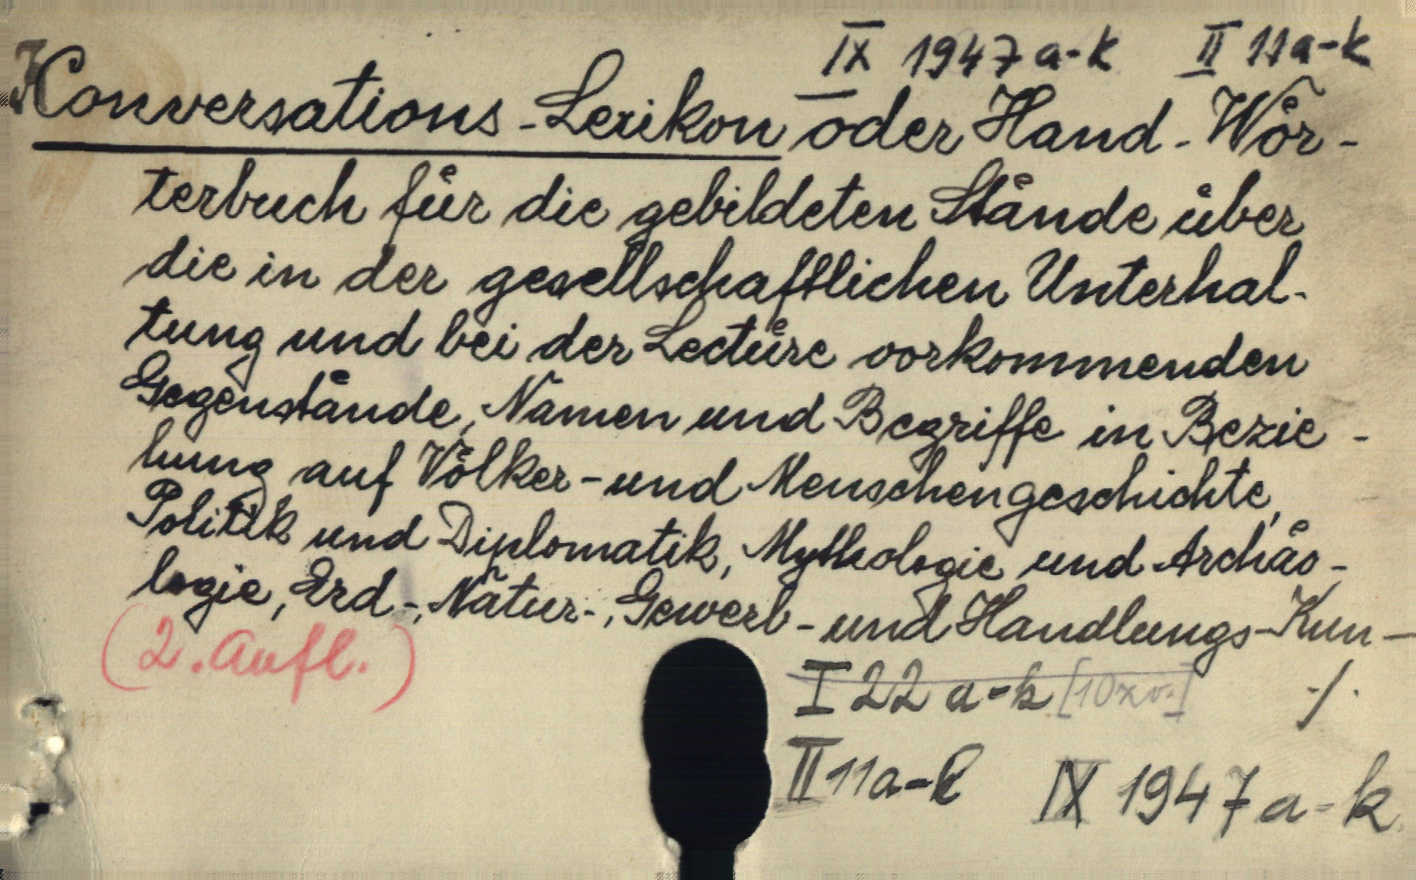 IX 1947 a-k II 11a-k
Conversations-Lexikon oder Hand-Wör-
terbuch für die gebildeten Stände über
die in der gesellschaftlichen Unterhal-
tung und bei der Lectüre vorkommenden
Gegenstände, Namen und Begriffe in Bezie-
hung auf Völker- und Menschengeschichte,
Politik und Diplomatik, Mythologie und Archäo-
logie, Erd-, Natur-, Gewerb- und Handlungs-Kun-
(2. Aufl.)
I 22 a-k [10xv.] ./.
II 11a-k IX 1947 a-k